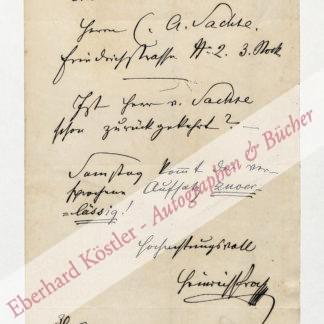 Herrn C. A. Sachse.
Friedrichstrasse No 2. 3. Stock
Ist Herr v. Sachse
schon zurückgekehrt? –
Samstag kommt der ver-
sprochene Aufsatz zuver-
=lässig!
Hochachtungsvoll
Eberhard Köstler - Autographen & Bücher